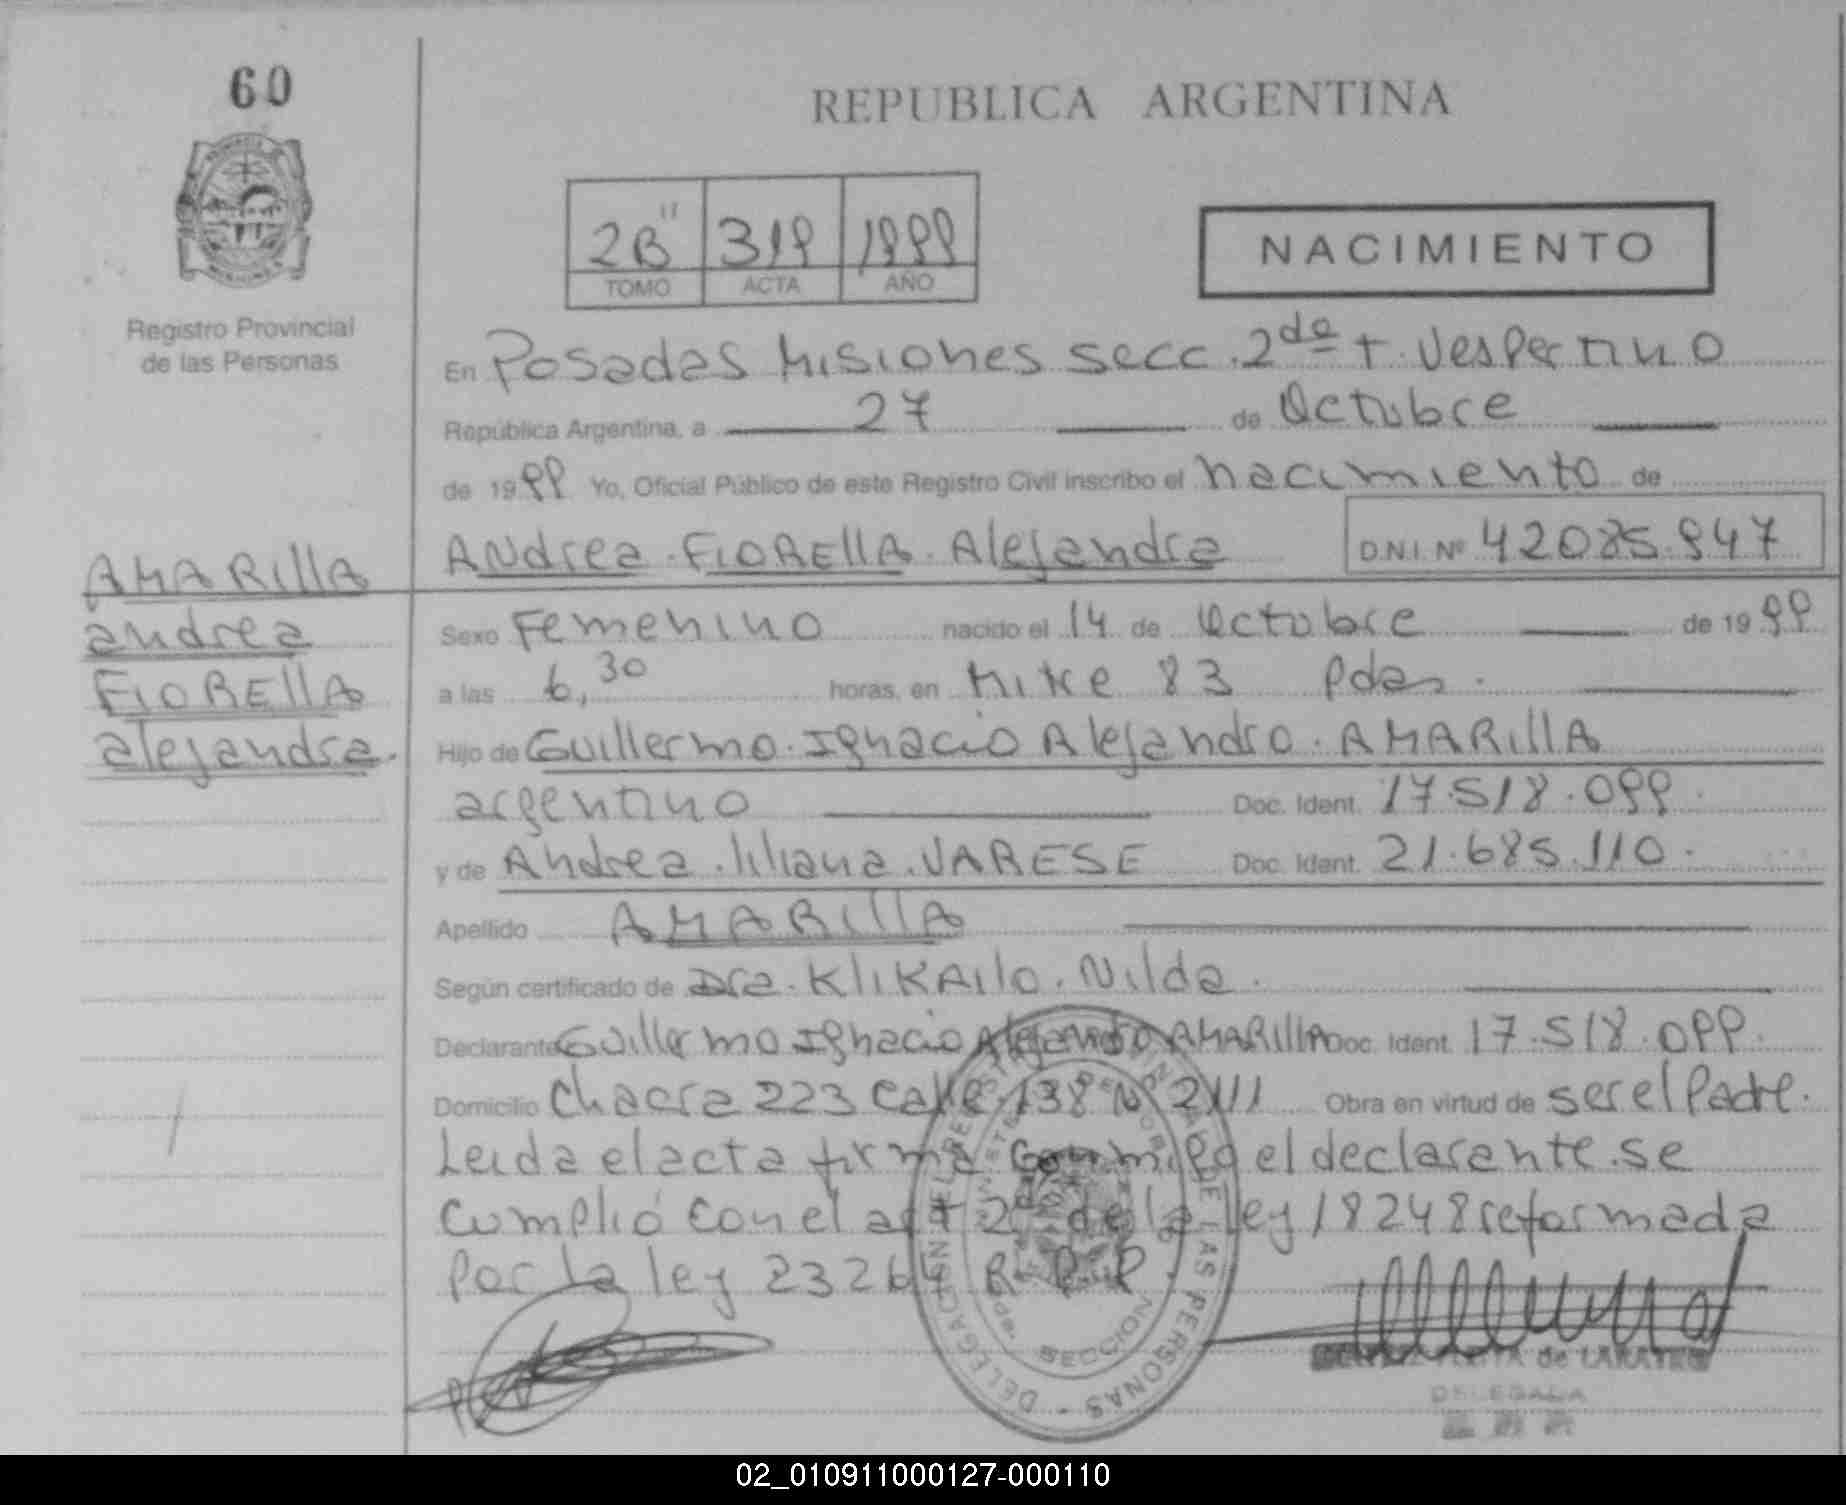 60
REPUBLICA ARGENTINA
2B" 319 1999
TOMO ACTA AÑO
NACIMIENTO
Registro Provincial
de las Personas
En Posadas Misiones secc. 2da t. Vespertino
República Argentina, a 27 de Octubre
de 1999 Yo, Oficial Público de este Registro Civil inscribo el nacimiento de
Andrea Fiorella Alejandra D.N.I. Nº 42085.947
AMARILLA
andrea
FIORELLA
alejandra.
Sexo Femenino nacido el 14 de Octubre de 1999
a las 6,30 horas, en Mitre 83 Pdas.
Hijo de Guillermo Ignacio Alejandro AMARILLA
argentino Doc. Ident. 17.518.099.
y de Andrea liliana VARESE Doc. Ident. 21.685.110.
Apellido AMARILLA
Según certificado de Dra. KliKAilo. Nilda.
Declarante Guillermo Ignacio Alejandro AMARILLA Doc. Ident. 17.518.099.
Domicilio Chacra 223 Calle 138 Nº 2111 Obra en virtud de ser el Padre.
Leida el acta firma conmigo el declarante. se
Cumplió con el art 2º de la Ley 18248 reformada
Por la ley 23264 R.P.P.
DELEGACION DEL REGISTRO PROVINCIAL DE LAS PERSONAS
SECCION
de LARATEG
DELEGADA
02_010911000127-000110